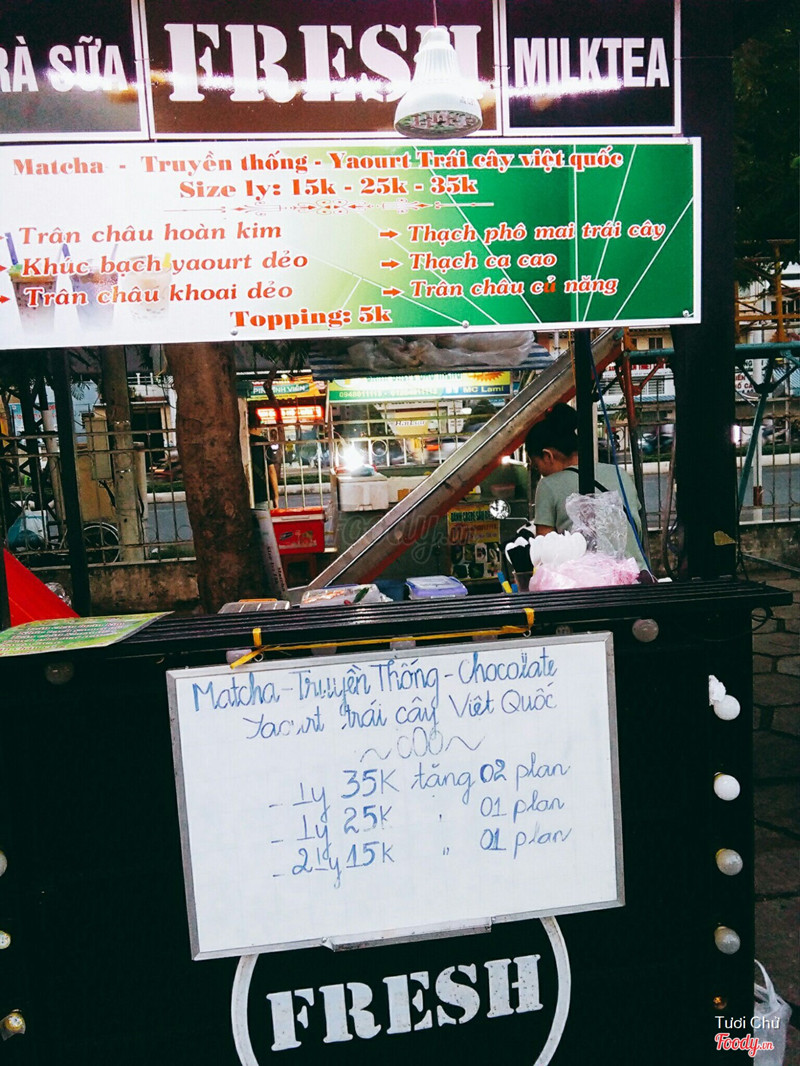 RÀ SỮA
FRESH
MILKTEA
Matcha - Truyền thống - Yaourt Trái cây việt quốc
Size ly: 15k - 25k - 35k
Trân châu hoàn kim
Thạch phô mai trái cây
Khúc bạch yaourt dẻo
Thạch ca cao
Trân châu khoai dẻo
Trân châu củ năng
Topping: 5k
Foody.vn
Matcha - Truyền Thống - Chocolate
Yaourt trái cây Việt Quốc
- 1 ly 35K tặng 02 plan
- 1 ly 25K " 01 plan
- 2 ly 15K " 01 plan
FRESH
Tươi Chử
Foody.vn